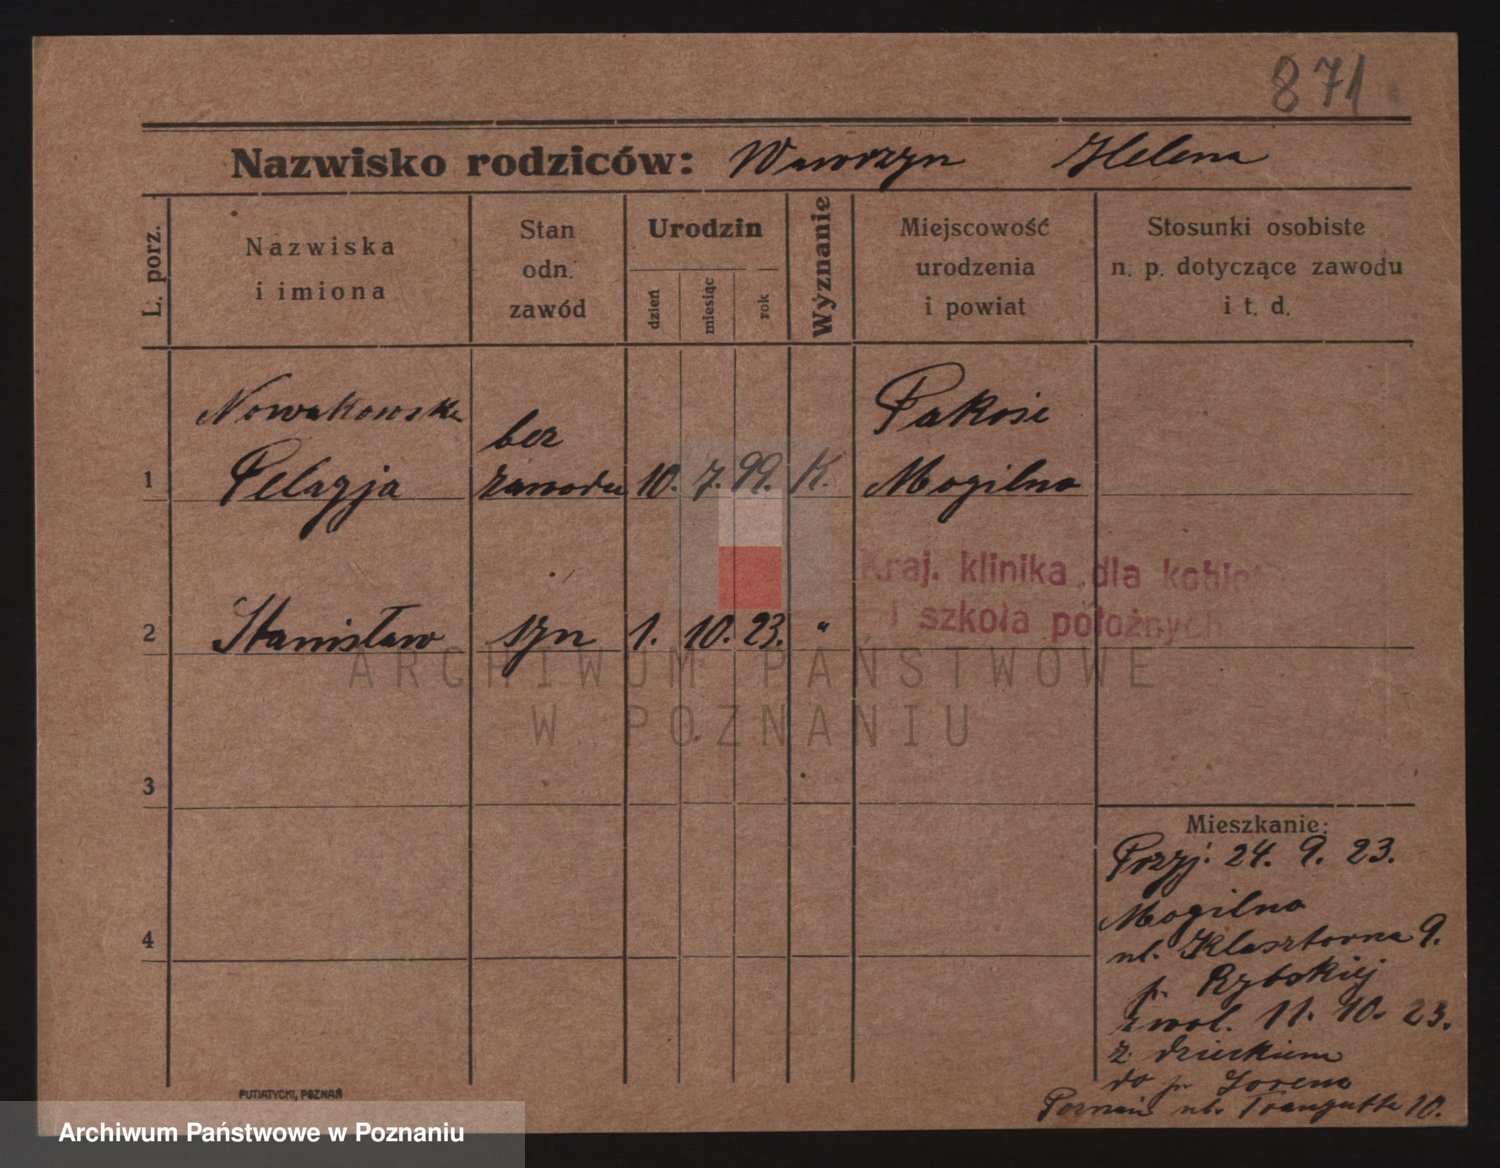 871
Nazwisko rodziców: Wawrzyn Helena
L. porz.
Nazwiska
i imiona
Stan
odn.
zawód
Urodzin
dzień
miesiąc
rok
Wyznanie
Miejscowość
urodzenia
i powiat
Stosunki osobiste
n. p. dotyczące zawodu
i t. d.
Nowakowska
bez
Pakość
1 Pelagja zawodu 10. 7. 99. K. Mogilno
Kraj. klinika dla kobiet
i szkoła położnych
2 Stanisław syn 1. 10. 23. "
ARCHIWUM PAŃSTWOWE
W POZNANIU
3
4
Mieszkanie:
Przyj. 24. 9. 23.
Mogilno
ul. Klasztorna 9.
p. Rybskiej
zwol. 11. 10. 23.
z dzieckiem
do p.
Poznań ul. Traugutta 10.
PUTIATYCKI, POZNAŃ
Archiwum Państwowe w Poznaniu